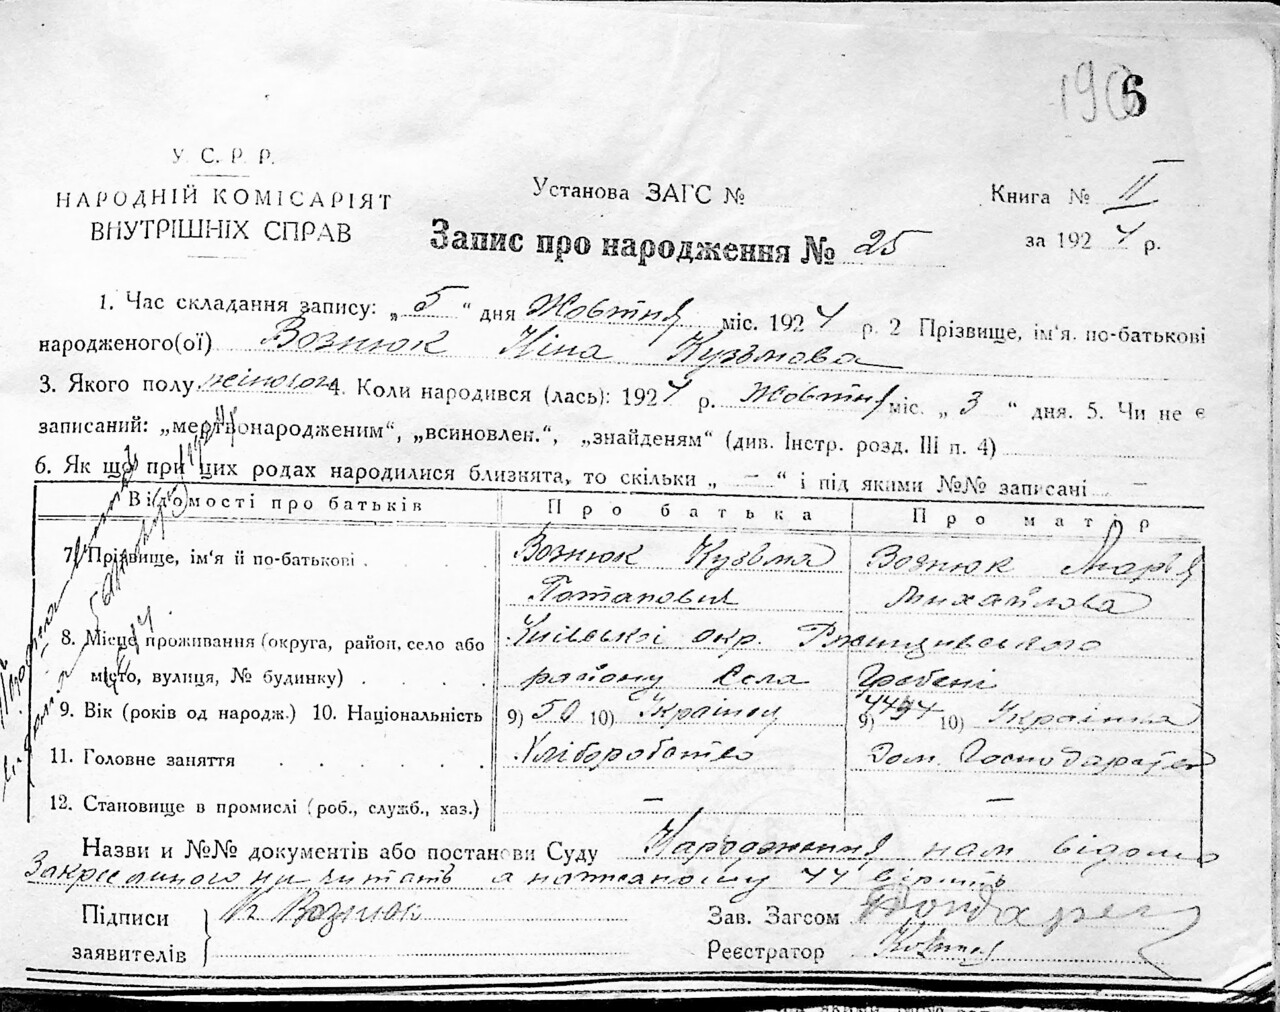 6
У. С. Р. Р.
НАРОДНІЙ КОМІСАРІЯТ
ВНУТРІШНІХ СПРАВ
Установа ЗАГС №
Книга № II
Запис про народження № 25
за 1924 р.
1. Час складання запису: „5“ дня Жовтня міс. 1924 р. 2 Прізвище, ім'я. по-батькові
народженого(ої) Вознюк Ніна Кузьмова
3. Якого полу жіночого 4. Коли народився (лась): 1924 р. Жовтня міс. „3“ дня. 5. Чи не є
записаний: „мертвонародженим“, „всиновлен.“, „знайденям“ (див. Інстр. розд. III п. 4)
6. Як що при цих родах народилися близнята, то скільки „ — “ і під якими №№ записані —
Відомості про батьків Про батька Про матір
7. Прізвище, ім'я й по-батькові Вознюк Кузьма Вознюк Марья
Потапович Михайлова
8. Місце проживання (округа, район, село або Київської окр. Ржищивського
місто, вулиця, № будинку) району Села Гребені
9. Вік (років од народж.) 10. Національність 9) 50 10) Українец 9) 44 10) Українка
11. Головне заняття Хліборобство Дом. Господарство
12. Становище в промислі (роб., служб., хаз.) — —
Назви и №№ документів або постанови Суду Народження нам відомо
Закресленого не читать а написаному 44 вірить
Підписи Вознюк Зав. Загсом
заявителів Реєстратор